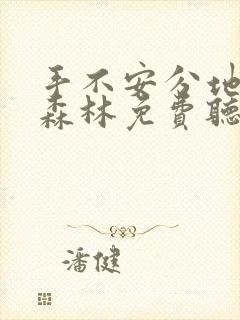 手不安分地
森林免費聽
潘健